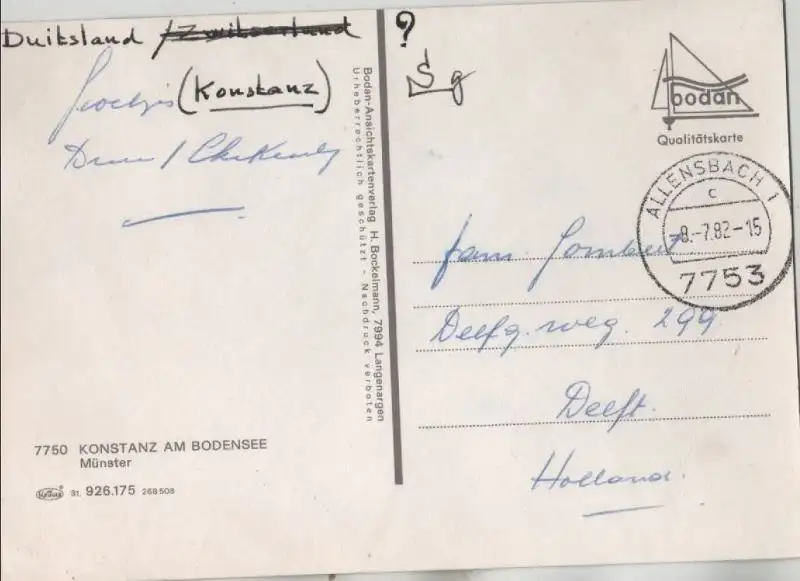 Duitsland / Zwitserland
(Konstanz)
?
Sg
bodan
Qualitätskarte
ALLENSBACH 1
c
-8.-7.82-15
7753
Bodan-Ansichtskartenverlag H. Bockelmann, 7994 Langenargen
Urheberrechtlich geschützt - Nachdruck verboten
fam.
Delfg. weg. 299
Delft.
Holland.
7750 KONSTANZ AM BODENSEE
Münster
31. 926.175 268508